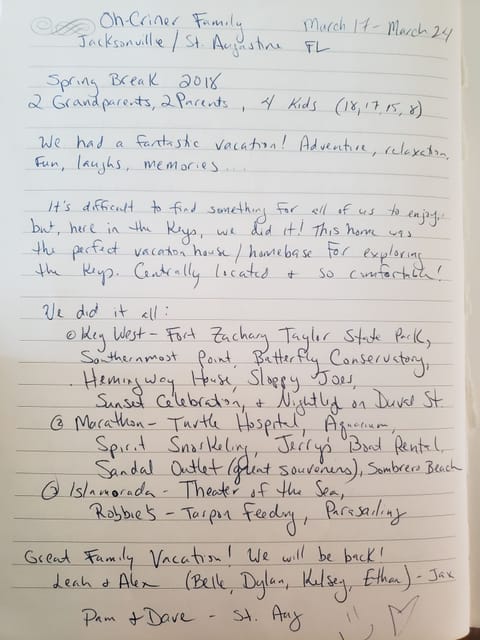 Oh-Criner Family March 17 - March 24
Jacksonville / St. Augustine FL
Spring Break 2018
2 Grandparents, 2 Parents, 4 Kids (18, 17, 15, 8)
We had a fantastic vacation! Adventure, relaxation,
fun, laughs, memories...
It's difficult to find something for all of us to enjoy,
but, here in the Keys, we did it! This home was
the perfect vacation house / homebase for exploring
the Keys. Centrally located & so comfortable!
We did it all:
Key West - Fort Zachary Taylor State Park,
Southernmost Point, Butterfly Conservatory,
Hemingway House, Sloppy Joes,
Sunset Celebration, & Nightlife on Duval St.
Marathon - Turtle Hospital, Aquarium,
Spirit Snorkeling, Jerry's Boat Rental,
Sandal Outlet (great souvenirs), Sombrero Beach
Islamorada - Theater of the Sea,
Robbie's - Tarpon Feeding, Parasailing
Great Family Vacation! We will be back!
Leah & Alex (Belle, Dylan, Kelsey, Ethan) - Jax
Pam & Dave - St. Aug